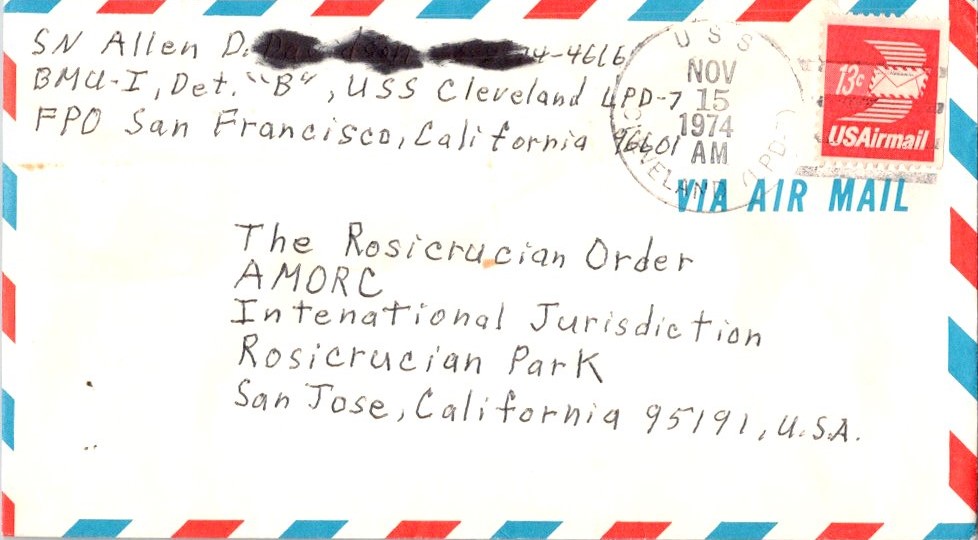 SN Allen D. 4-4616
BMU-I, Det. "B", USS Cleveland LPD-7
FPO San Francisco, California 96601
USS
NOV
15
1974
AM
CLEVELAND (LPD-7)
13c
USAirmail
VIA AIR MAIL
The Rosicrucian Order
AMORC
Intenational Jurisdiction
Rosicrucian Park
San Jose, California 95191, U.S.A.